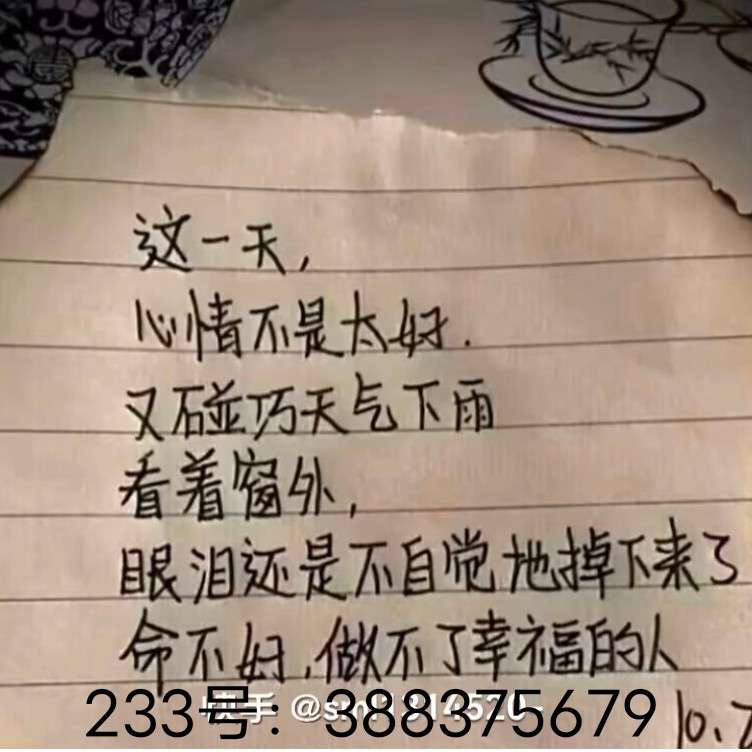 这一天,
心情不是太好.
又碰巧天气下雨
看着窗外,
眼泪还是不自觉地掉下来了
命不好,做不了幸福的人
233号：388375679
10.